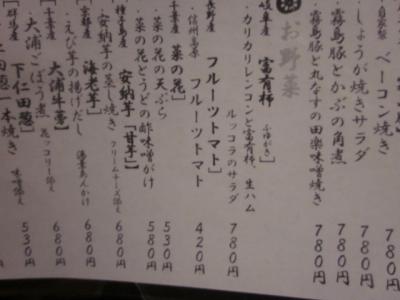 ・自家製
ベーコン焼き 780円
・しょうが焼きサラダ 780円
・霧島豚とかぶの角煮 780円
・霧島豚と丸なすの田楽味噌焼き 780円
お野菜
岐阜産 富有柿
・カリカリレンコンと富有柿、生ハム
ルッコラのサラダ 780円
長野産 フルーツトマト」
・信州高原 フルーツトマト 420円
千葉産 菜の花」
・菜の花の天ぷら 530円
・菜の花とうどの酢味噌がけ 580円
種子島産 安納芋「甘芋」
・安納芋の蒸し焼き クリームチーズ添え 680円
海老芋」
・えび芋の揚げだし 湯葉あんかけ 680円
千葉産 大浦牛蒡】
大浦ごぼう煮 花ッコリー添え 680円
群馬産 下仁田葱】
一本焼き 味噌添え 530円